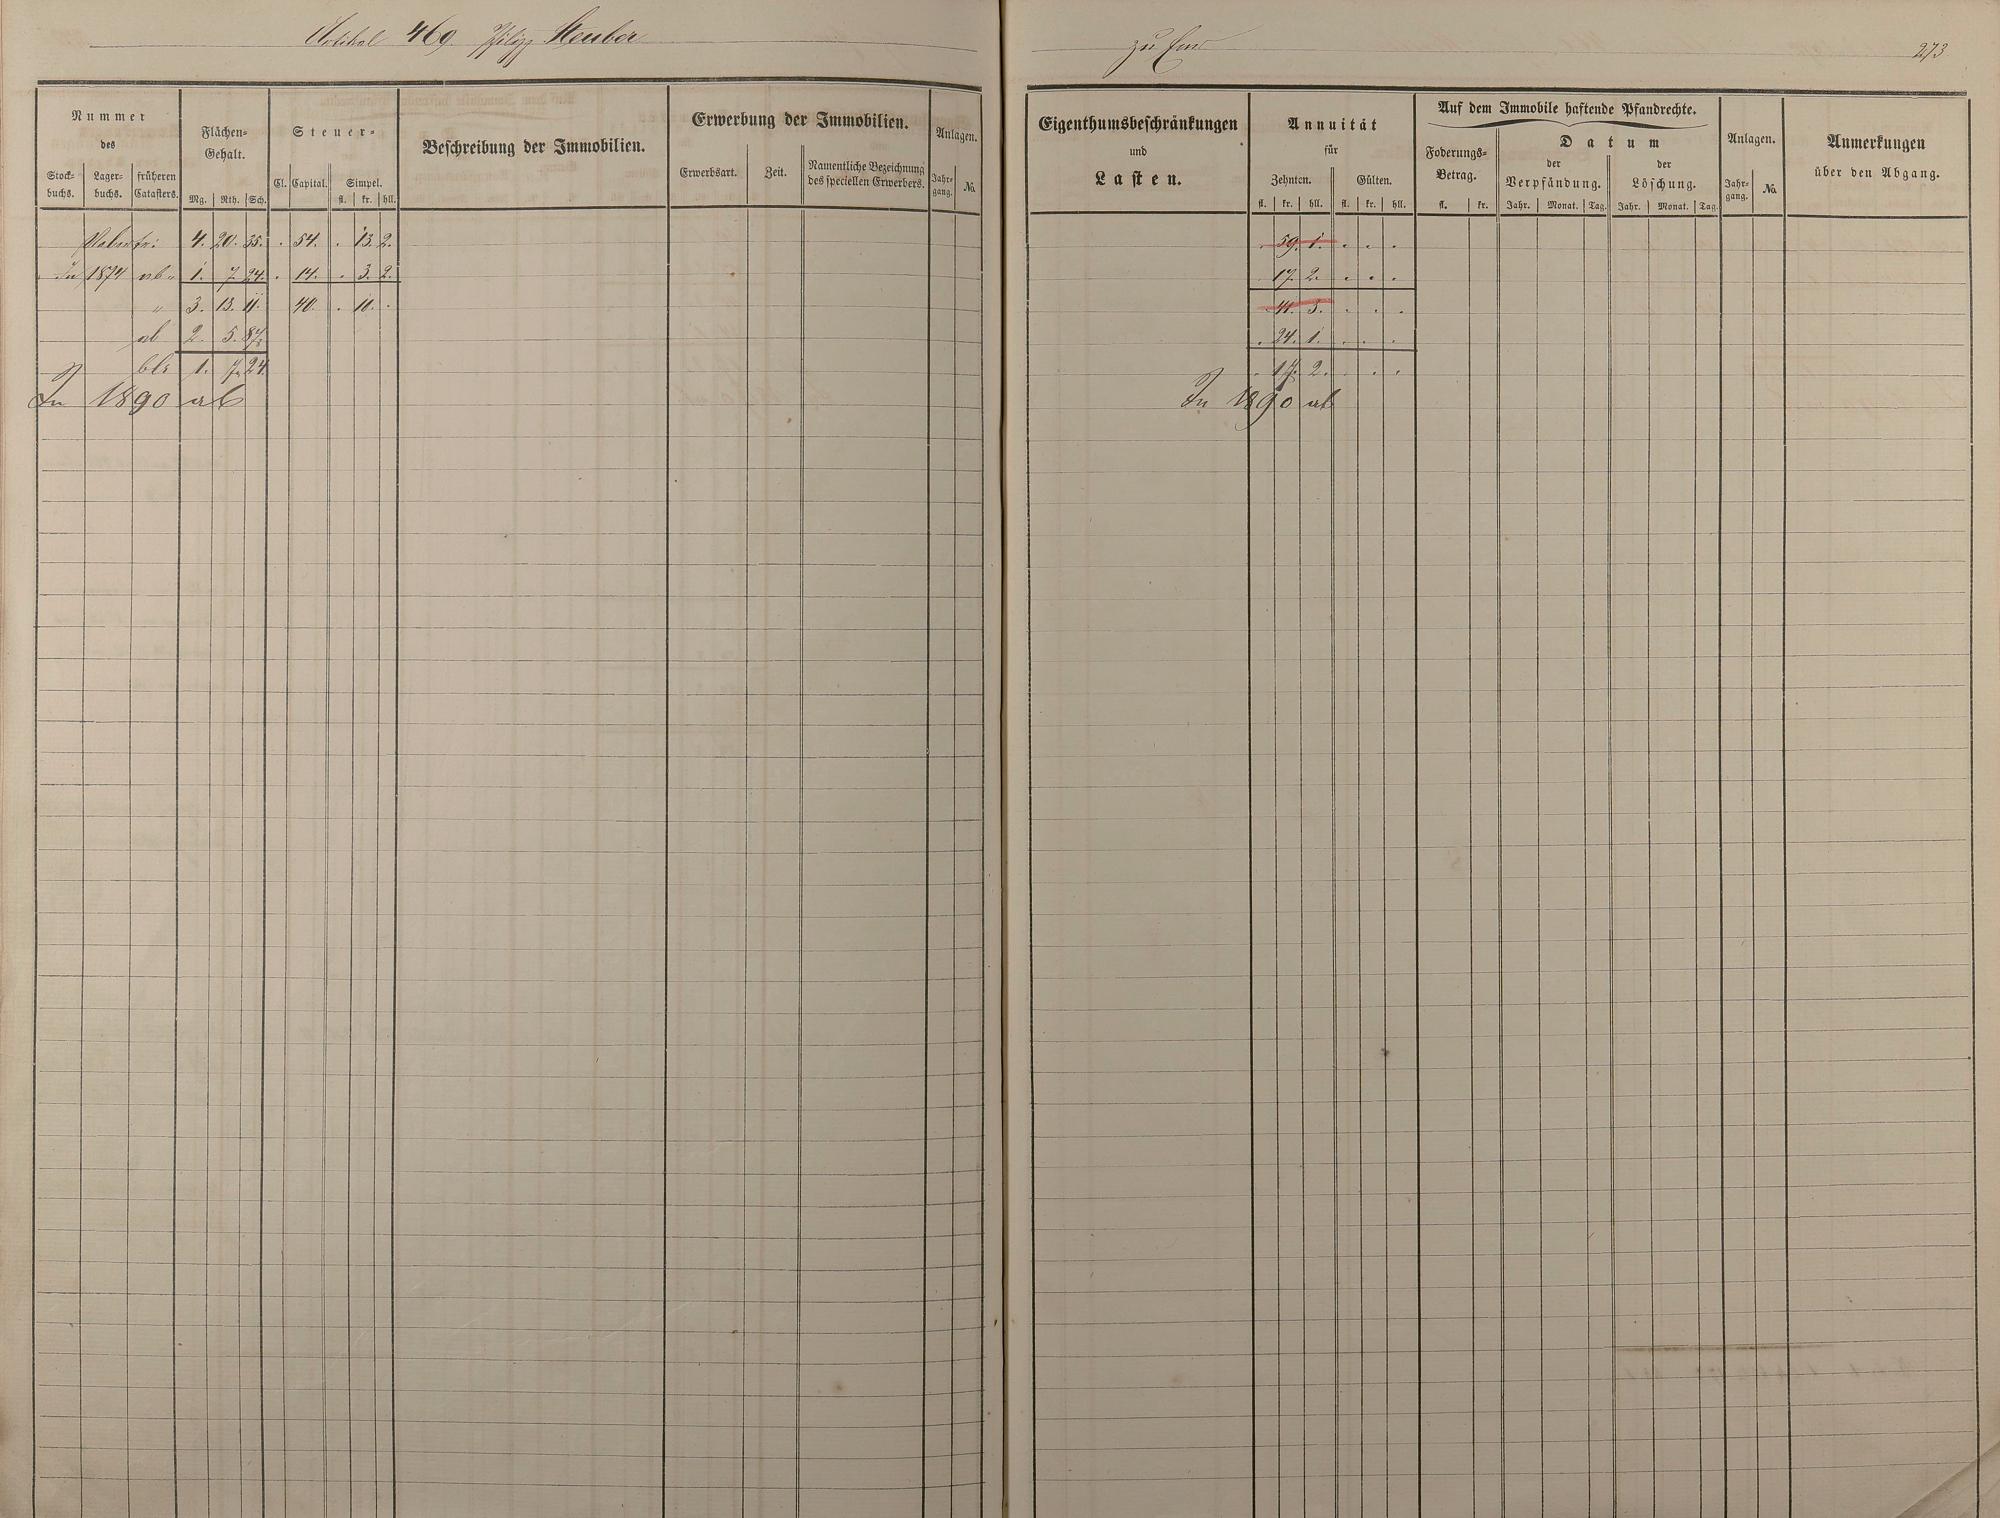 Artikel 469. Philipp Steuber
Nummer
des
Stock-
buchs.
Lager-
buchs.
früheren
Catasters.
Flächen-
Gehalt.
Mg. Rth. Sch.
Steuer-
Cl. Capital. Simpel.
fl. kr. hll.
Beschreibung der Immobilien.
Erwerbung der Immobilien.
Erwerbsart. Zeit.
Namentliche Bezeichnung
des speciellen Erwerbers.
Anlagen.
Jahr-
gang.
No.
4. 20. 35. . 54. . 13. 2.
In 1874 ab 1. 7. 24. . 14. . 3. 2.
" 3. 13. 11. 40. . 10. .
ab 2. 5. 87.
blt 1. 7. 24.
In 1890 ab
zu Ems
273
Eigenthumsbeschränkungen
und
Lasten.
Annuität
für
Zehnten. Gülten.
fl. kr. hll. fl. kr. hll.
Auf dem Immobile haftende Pfandrechte.
Foderungs-
Betrag.
fl. kr.
Datum
der
Verpfändung.
Jahr. Monat. Tag.
der
Löschung.
Jahr. Monat. Tag.
Anlagen.
Jahr-
gang.
No.
Anmerkungen
über den Abgang.
. 59. 1. . . .
17. 2. . . .
. 41. 3. . . .
. 24. 1. . . .
. 17. 2. . . .
In 1890 ab